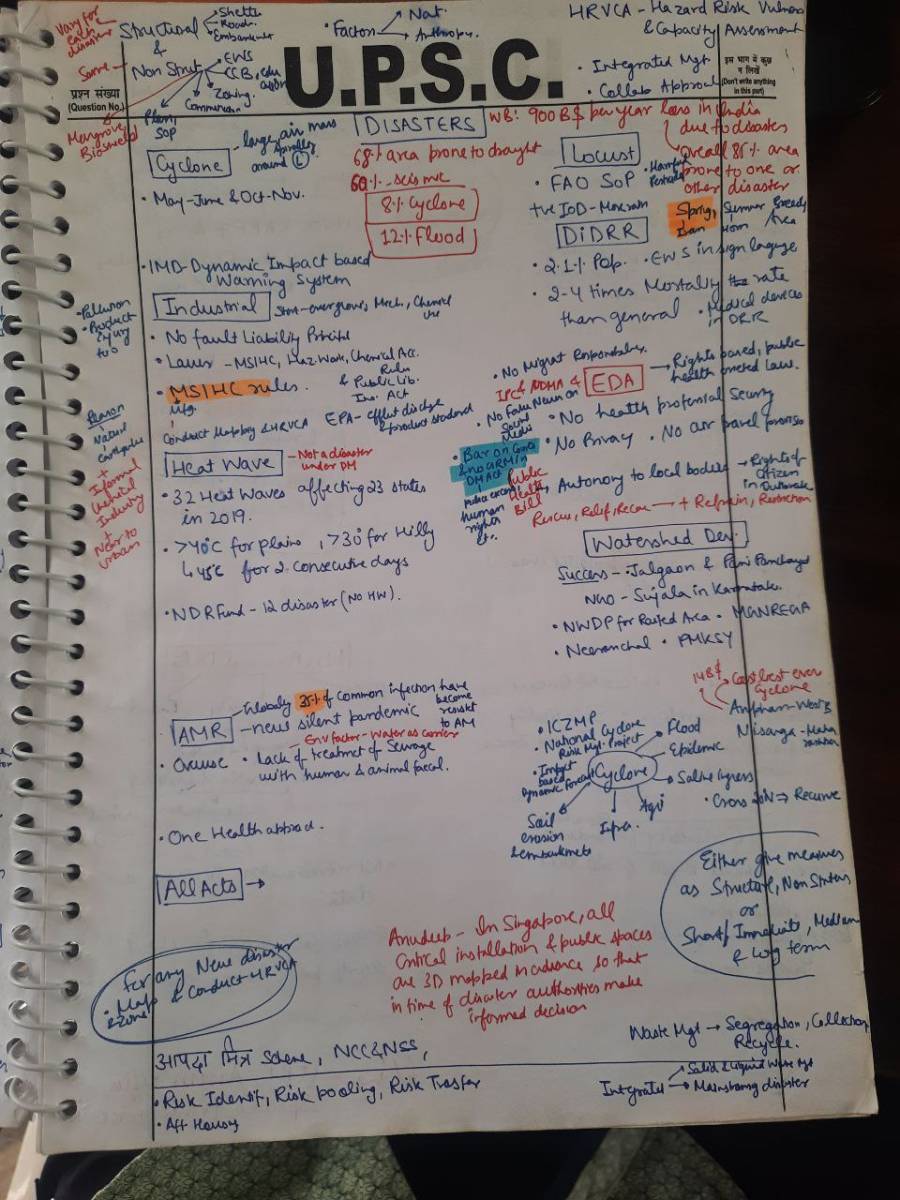 Vary for
each
disaster
Structural
Shelter
Road
Embankment
&
Same
Non Struct.
EWS
CCB, edu
Zoning.
Communica.
Plan,
SOP
Mangrove
Bioshield
Factors
Nat.
Anthropo.
HRVCA - Hazard Risk Vulnera
& Capacity Assessment
Integrated Mgt
Collab Approach
प्रश्न संख्या
(Question No.)
U.P.S.C.
इस भाग में कुछ
न लिखें
(Don't write anything
in this part)
DISASTERS
WB: 900 B$ per year loss in India
due to disasters
Overall 85% area
prone to one or
other disaster
68% area prone to draught
60% - seismic
8% Cyclone
12% Flood
Cyclone
large air mass
spirally
around L
• May-June & Oct-Nov.
• IMD-Dynamic Impact based
Warning System
Locust
• FAO SoP
+ve IoD - Monsoon
Spring,
Iran
Summer Breedg
Horn Area
DiDRR
• 2.1% Pop.
• EWS in sign language
• 2-4 times Mortality rate
than general
• Medical devices
in DRR
Industrial
• Pollution
• Product
Injury
too
• No fault Liability
• Laws - MSIHC, Haz. Waste, Chemical Acc.
Rules
& Public Lib.
Ins. Act
• MSIHC rules.
Mfg.
Conduct Mapping & HRVCA
EPA - Effluent discharge
& product standard
Reason
Natural
earthquake
+
Informal
Chemical
Industry
+
Near to
Urban
• No Migrant Responsibility.
IPC & NDMA &
EDA
Rights based, public
health oriented Law.
• No Fake News on
Social
Media
• No health professional Security
• No Privacy
• No air travel provision
• Bar on Court
& no ARM in
DM Act
human
rights
etc.
Public
Health
Bill
• Autonomy to local bodies
Rights of
Citizen
in Outbreak
Rescue, Relief, Recov → + Refrain, Restriction
Heat Wave
Not a disaster
under DM
• 32 Heat Waves affecting 23 states
in 2019.
• >40°C for plains, >30° for Hilly
↳ 45°C for 2 consecutive days
• NDR Fund - 12 disaster (NO HW).
Watershed Dev.
Success - • Jalgaon & Pani Panchayat
NGO - Sujala in Karnataka.
• NWDP for Rainfed Area • MGNREGA
• Neeranchal • PMKSY
AMR
Globally 35% of common infection have
become
resist
to AM
new silent pandemic
Env factor - Water as carrier
• Overuse
• Lack of treatment of Sewage
with human & animal faecal.
• One Health approach.
14B$
Costliest ever
Cyclone
Amphan - West B
Nisarga - Maha
rashtra
• ICZMP
• National Cyclone
Risk Mgt. Project
• Impact
based
Dynamic forecast
Cyclone
Flood
Epidemic
Saline Ingress
Agri
Infra.
Soil
erosion
& embankments
• Cross 20°N ⇒ Recurve
All Acts →
Either give measures
as Structure, Non Structure
or
Short/Immediate, Medium
& Long term
For any New disaster
• Map & conduct HRVCA
& Zone
Anudeep - In Singapore, all
Critical installation & public spaces
are 3D mapped in advance so that
in time of disaster authorities make
informed decision
आपदा मित्र Scheme, NCC & NSS,
Waste Mgt → Segregation, Collection
Recycle.
• Risk Identif, Risk pooling, Risk Trasfer
Integrated
Solid & Liquid Waste Mgt
Mainstreaming disaster